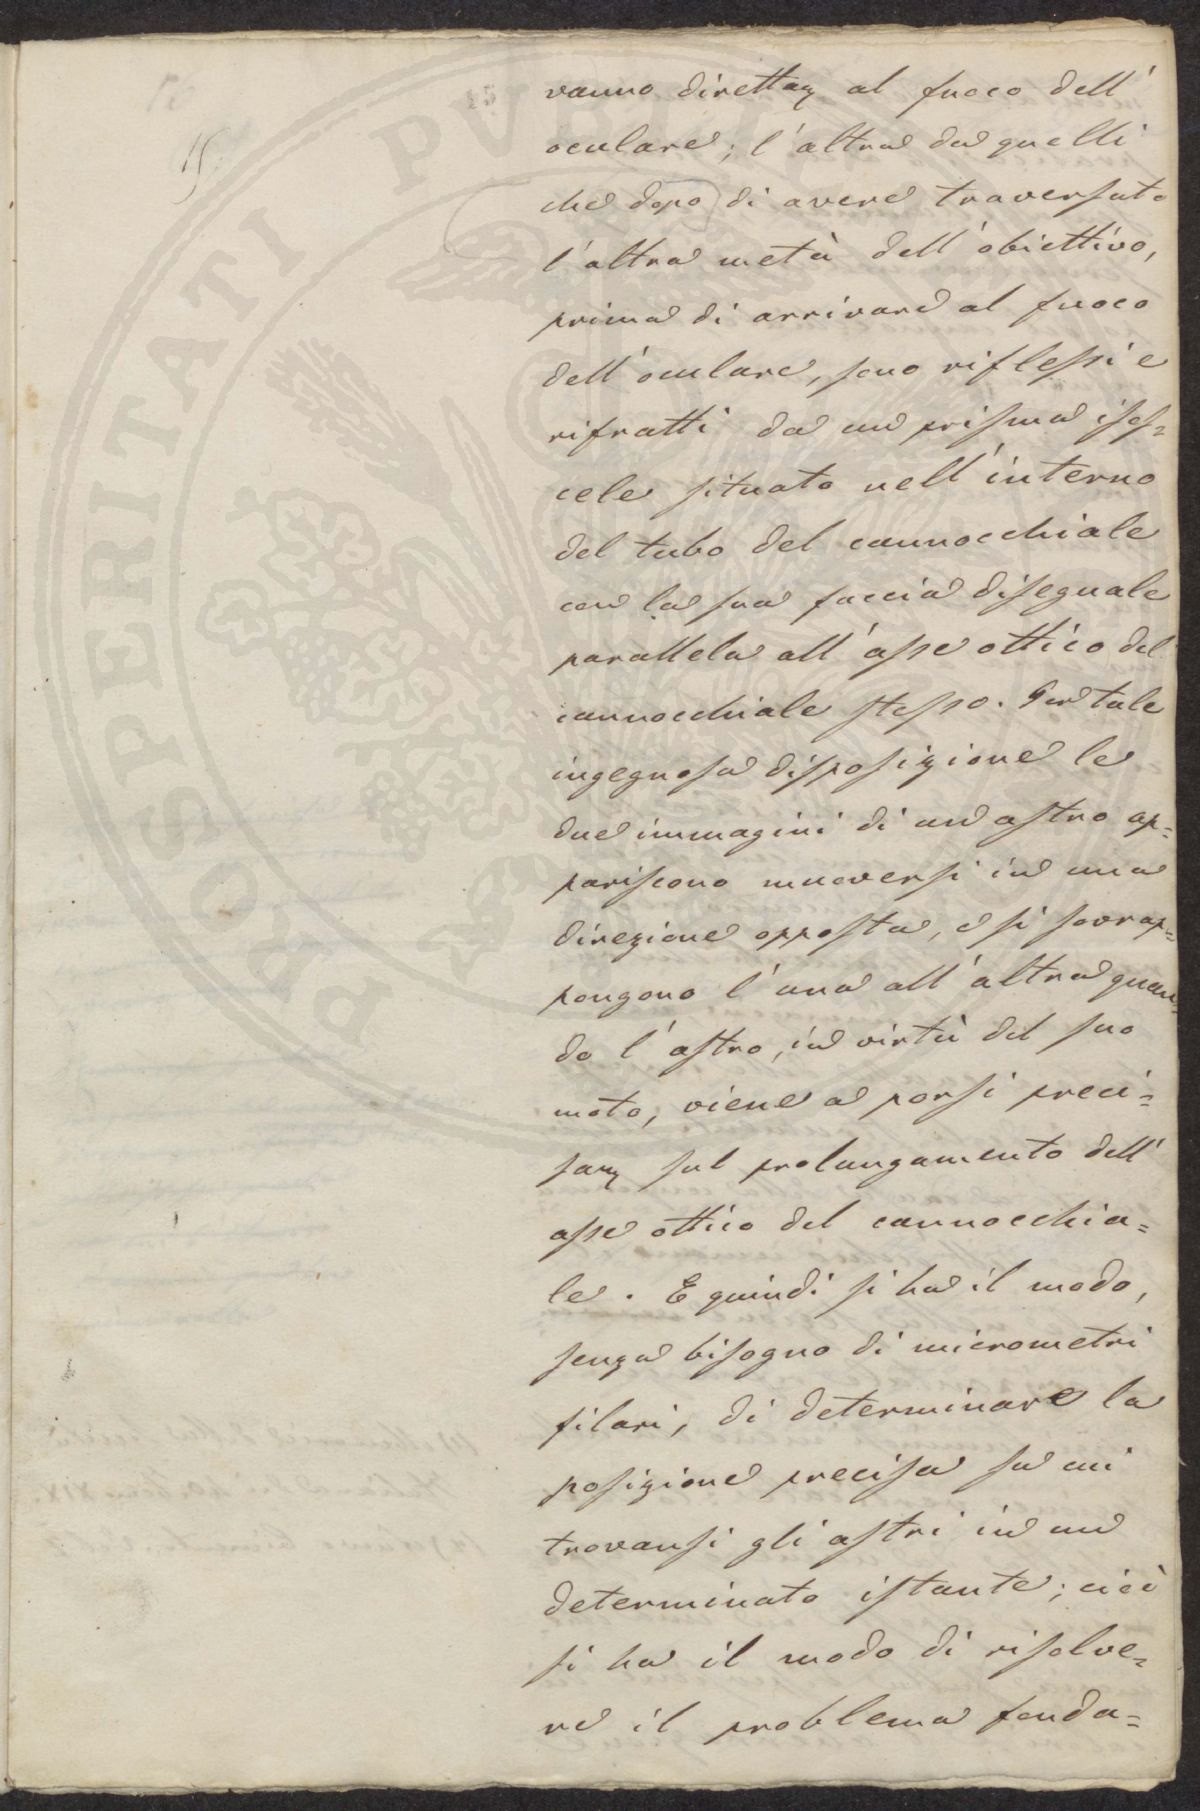 vanno direttam. al fuoco dell'
oculare; l'altra da quelli
che dopo di avere traversato
l'altra metà dell'obiettivo,
prima di arrivare al fuoco
dell'oculare, sono riflessi e
rifratti da un prisma isos=
cele situato nell'interno
del tubo del cannocchiale
con la sua faccia diseguale
parallela all'asse ottico del
cannocchiale stesso. Per tale
ingegnosa disposizione le
due immagini di un astro ap=
pariscono muoversi in una
direzione opposta, e si sovrap=
pongono l'una all'altra quan=
do l'astro, in virtù del suo
moto, viene a porsi preci=
sam. sul prolungamento dell'
asse ottico del cannocchia=
le. E quindi si ha il modo,
senza bisogno di micrometri
filari, di determinare la
posizione precisa in cui
trovansi gli astri in un
determinato istante; cioè
si ha il modo di risolve=
re il problema fonda=
PROSPERITATI PVBLI